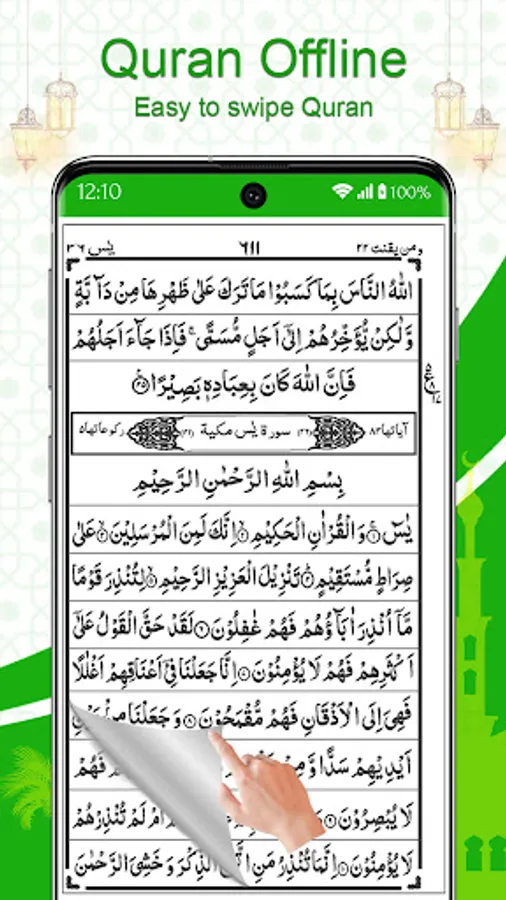 Quran Offline
Easy to swipe Quran
12:10 100%
ومن يقنت ٢٢ ٦١١ يٰسٓ ٣٦
اللهُ النَّاسَ بِمَا كَسَبُوْا مَا تَرَكَ عَلٰى ظَهْرِهَا مِنْ دَآبَّةٍ
وَّلٰكِنْ يُّؤَخِّرُهُمْ اِلٰٓى اَجَلٍ مُّسَمًّى ۚ فَاِذَا جَآءَ اَجَلُهُمْ
فَاِنَّ اللهَ كَانَ بِعِبَادِهٖ بَصِيْرًا ﴿٤٥﴾
اٰياتها ٨٣ سورة يٰسٓ مكية (٤١) ركوعاتها ٥
بِسْمِ اللهِ الرَّحْمٰنِ الرَّحِيْمِ
يٰسٓ ﴿١﴾ وَالْقُرْاٰنِ الْحَكِيْمِ ﴿٢﴾ اِنَّكَ لَمِنَ الْمُرْسَلِيْنَ ﴿٣﴾ عَلٰى
صِرَاطٍ مُّسْتَقِيْمٍ ﴿٤﴾ تَنْزِيْلَ الْعَزِيْزِ الرَّحِيْمِ ﴿٥﴾ لِتُنْذِرَ قَوْمًا
مَّآ اُنْذِرَ اٰبَآؤُهُمْ فَهُمْ غٰفِلُوْنَ ﴿٦﴾ لَقَدْ حَقَّ الْقَوْلُ عَلٰٓى
اَكْثَرِهِمْ فَهُمْ لَا يُؤْمِنُوْنَ ﴿٧﴾ اِنَّا جَعَلْنَا فِيْٓ اَعْنَاقِهِمْ اَغْلٰلًا
فَهِيَ اِلَى الْاَذْقَانِ فَهُمْ مُّقْمَحُوْنَ ﴿٨﴾ وَجَعَلْنَا مِنْۢ بَيْنِ
اَيْدِيْهِمْ سَدًّا وَّمِنْ فَهُمْ
لَا يُبْصِرُوْنَ اَمْ لَمْ تُنْذِرْهُمْ
لَا يُؤْمِنُوْنَ ﴿١٠﴾ اِنَّمَا تُنْذِرُ مَنِ الذِّكْرَ وَخَشِيَ الرَّحْمٰنَ